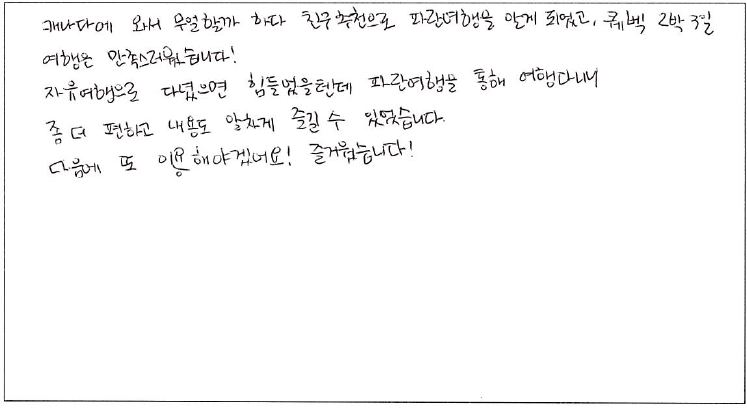 캐나다에 와서 무얼할까 하다 친구추천으로 파란여행을 알게 되었고, 퀘벡 2박 3일
여행은 만족스러웠습니다!
자유여행으로 다녔으면 힘들었을텐데 파란여행을 통해 여행다니니
좀 더 편하고 내용도 알차게 즐길 수 있었습니다.
다음에 또 이용해야겠어요! 즐거웠습니다!